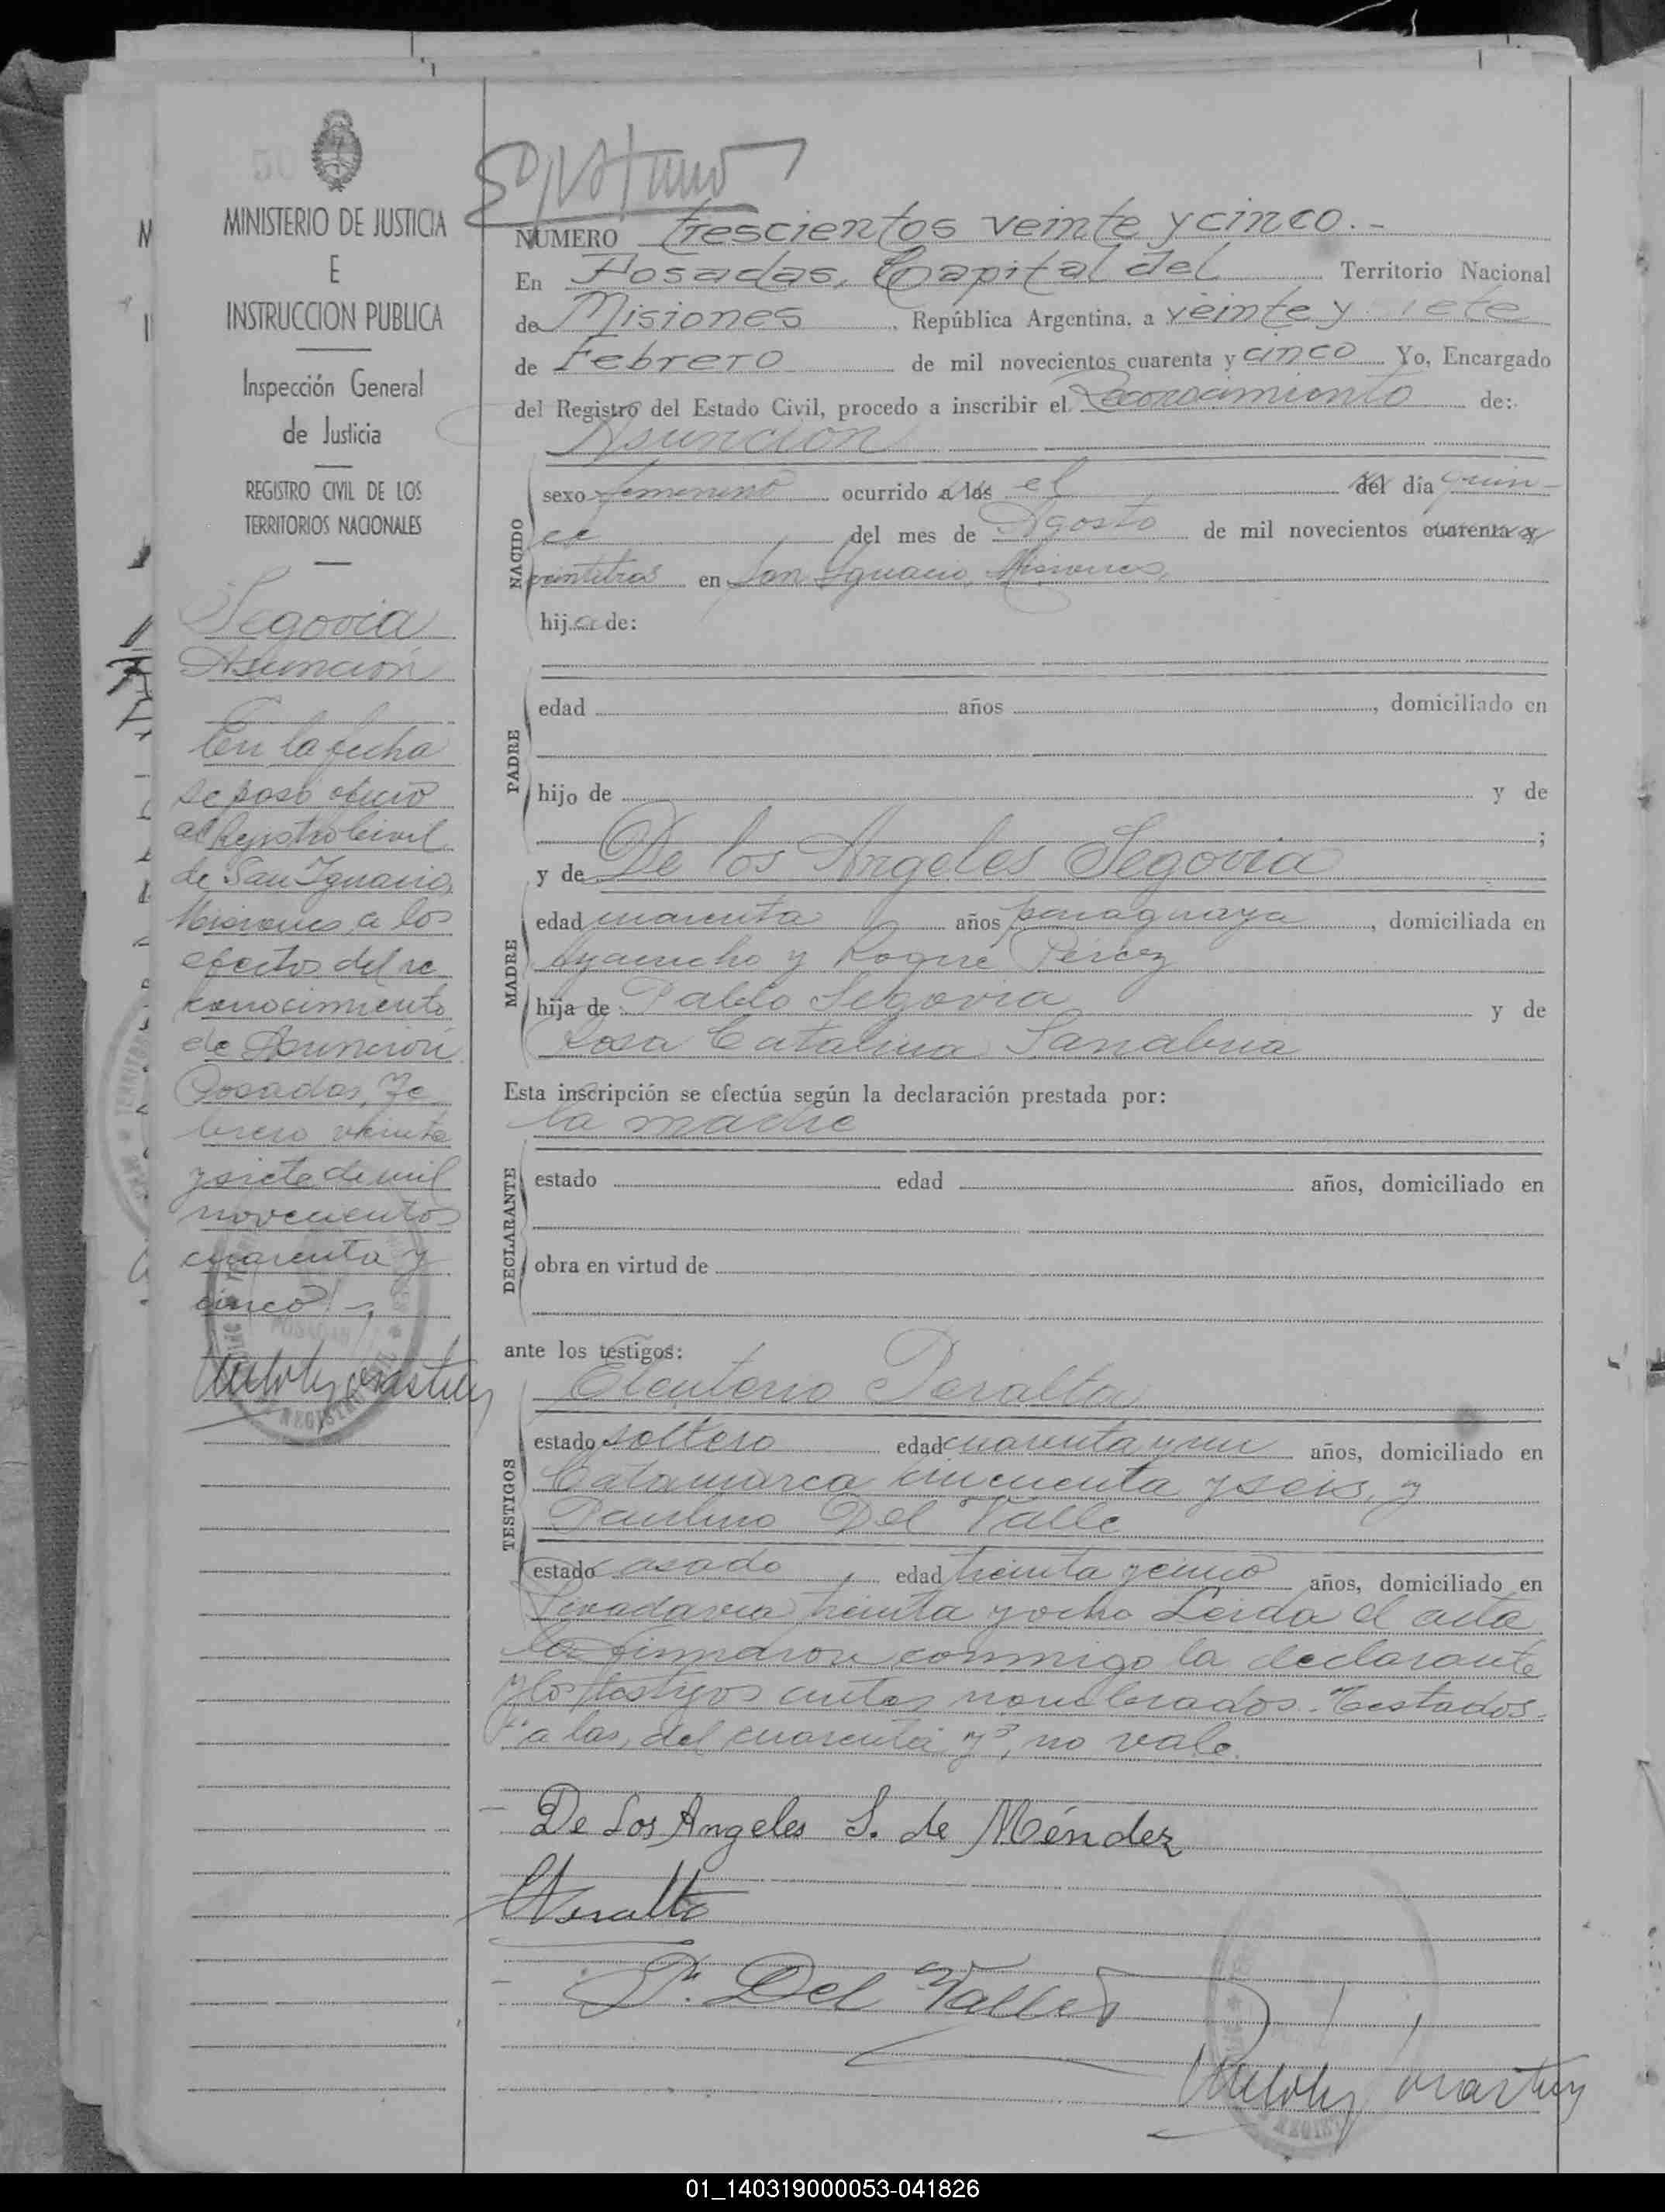 MINISTERIO DE JUSTICIA
E
INSTRUCCION PUBLICA
Inspección General
de Justicia
REGISTRO CIVIL DE LOS
TERRITORIOS NACIONALES
Segovia
Asunción
En la fecha
se pasó oficio
al Registro Civil
de San Ignacio,
Misiones a los
efectos del re
conocimiento
de Asunción
Posadas, Fe
brero veinte
y siete de mil
novecientos
cuarenta y
cinco
NUMERO trescientos veinte y cinco.-
En Posadas, Capital del Territorio Nacional
de Misiones, República Argentina, a veinte y siete
de Febrero de mil novecientos cuarenta y cinco Yo, Encargado
del Registro del Estado Civil, procedo a inscribir el Reconocimiento de:
Asunción
NACIDO
sexo femenino ocurrido a las el del día quin-
ce del mes de Agosto de mil novecientos cuarenta y
veintitres en San Ignacio, Misiones
hija de:
PADRE
edad años, domiciliado en
hijo de y de
;
y de De los Angeles Segovia
MADRE
edad cuarenta años paraguaya, domiciliada en
Ayacucho y Roque Pérez
hija de Pablo Segovia y de
Rosa Catalina Sanabria
Esta inscripción se efectúa según la declaración prestada por:
la madre
DECLARANTE
estado edad años, domiciliado en
obra en virtud de
ante los testigos:
TESTIGOS
Eleuterio Peralta
estado soltero edad cuarenta y un años, domiciliado en
Catamarca cincuenta y seis, y
Paulino Del Valle
estado casado edad treinta y cinco años, domiciliado en
Rivadavia treinta y ocho Leida el acta
la firmaron conmigo la declarante
y los testigos antes nombrados. Testados
"a las, del cuarenta y", no vale.
De Los Angeles S. de Méndez
Peralta
P. Del Valle
01_140319000053-041826